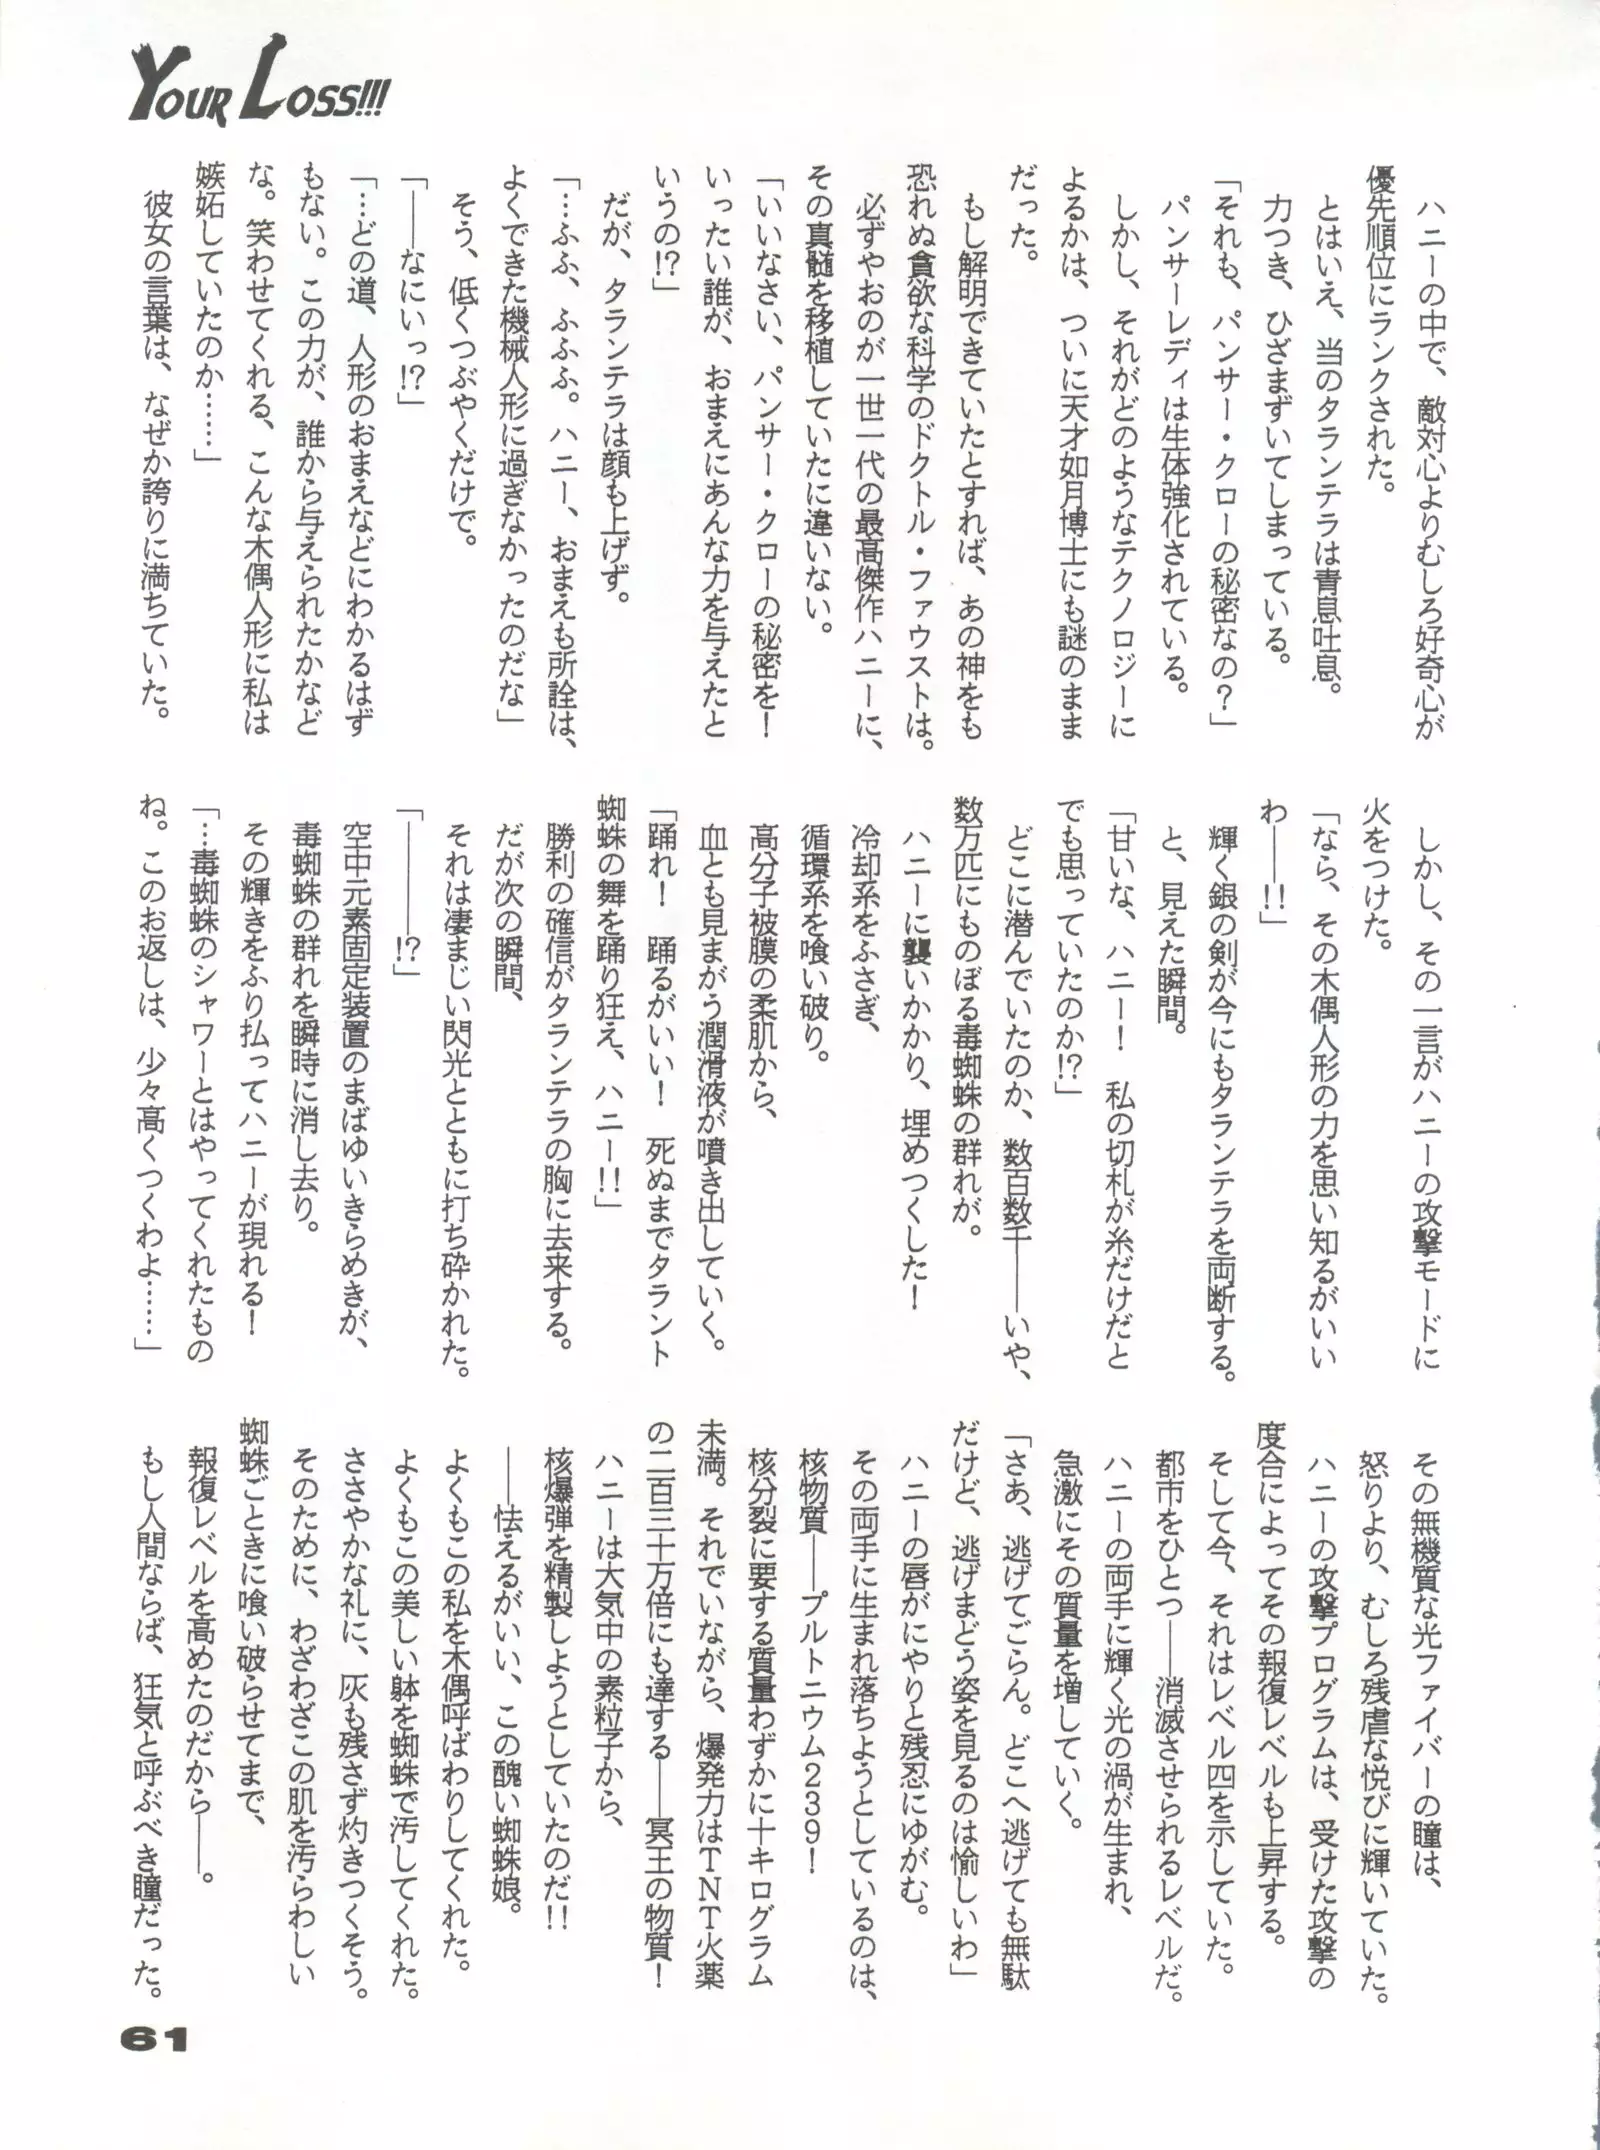 YOUR LOSS!!!
ハニーの中で、敵対心よりむしろ好奇心が
優先順位にランクされた。
とはいえ、当のタランテラは青息吐息。
力つき、ひざまずいてしまっている。
「それも、パンサー・クローの秘密なの?」
パンサーレディは生体強化されている。
しかし、それがどのようなテクノロジーに
よるかは、ついに天才如月博士にも謎のまま
だった。
もし解明できていたとすれば、あの神をも
恐れぬ貪欲な科学のドクトル・ファウストは。
必ずやおのが一世一代の最高傑作ハニーに、
その真髄を移植していたに違いない。
「いいなさい、パンサー・クローの秘密を!
いったい誰が、おまえにあんな力を与えたと
いうの!?」
だが、タランテラは顔も上げず。
「…ふふ、ふふふ。ハニー、おまえも所詮は、
よくできた機械人形に過ぎなかったのだな」
そう、低くつぶやくだけで。
「――なにいっ!?」
「…どの道、人形のおまえなどにわかるはず
もない。この力が、誰から与えられたかなど
な。笑わせてくれる、こんな木偶人形に私は
嫉妬していたのか……」
彼女の言葉は、なぜか誇りに満ちていた。
しかし、その一言がハニーの攻撃モードに
火をつけた。
「なら、その木偶人形の力を思い知るがいい
わ――!!」
輝く銀の剣が今にもタランテラを両断する。
と、見えた瞬間。
「甘いな、ハニー! 私の切札が糸だけだと
でも思っていたのか!?」
どこに潜んでいたのか、数百数千――いや、
数万匹にものぼる毒蜘蛛の群れが。
ハニーに襲いかかり、埋めつくした!
冷却系をふさぎ、
循環系を喰い破り。
高分子被膜の柔肌から、
血とも見まがう潤滑液が噴き出していく。
「踊れ! 踊るがいい! 死ぬまでタラント
蜘蛛の舞を踊り狂え、ハニー!!」
勝利の確信がタランテラの胸に去来する。
だが次の瞬間、
それは凄まじい閃光とともに打ち砕かれた。
「――――!?」
空中元素固定装置のまばゆいきらめきが、
毒蜘蛛の群れを瞬時に消し去り。
その輝きをふり払ってハニーが現れる!
「…毒蜘蛛のシャワーとはやってくれたもの
ね。このお返しは、少々高くつくわよ……」
その無機質な光ファイバーの瞳は、
怒りより、むしろ残虐な悦びに輝いていた。
ハニーの攻撃プログラムは、受けた攻撃の
度合によってその報復レベルも上昇する。
そして今、それはレベル四を示していた。
都市をひとつ――消滅させられるレベルだ。
ハニーの両手に輝く光の渦が生まれ、
急激にその質量を増していく。
「さあ、逃げてごらん。どこへ逃げても無駄
だけど、逃げまどう姿を見るのは愉しいわ」
ハニーの唇がにやりと残忍にゆがむ。
その両手に生まれ落ちようとしているのは、
核物質――プルトニウム239!
核分裂に要する質量わずかに十キログラム
未満。それでいながら、爆発力はTNT火薬
の二百三十万倍にも達する――冥王の物質!
ハニーは大気中の素粒子から、
核爆弾を精製しようとしていたのだ!!
――怯えるがいい、この醜い蜘蛛娘。
よくもこの私を木偶呼ばわりしてくれた。
よくもこの美しい躰を蜘蛛で汚してくれた。
ささやかな礼に、灰も残さず灼きつくそう。
そのために、わざわざこの肌を汚らわしい
蜘蛛ごときに喰い破らせてまで、
報復レベルを高めたのだから――。
もし人間ならば、狂気と呼ぶべき瞳だった。
61